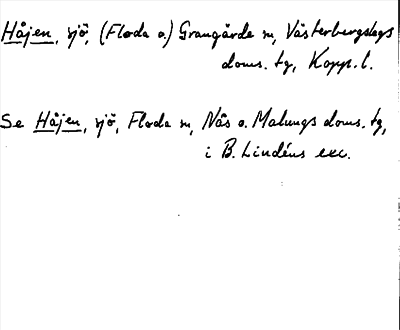 Håjen, sjö, (Floda o.) Grangärde sn, Västerbergslags
doms. tg, Kopp. l.
Se Håjen, sjö, Floda sn, Nås o. Malungs doms. tg,
i B. Lindéns exc.